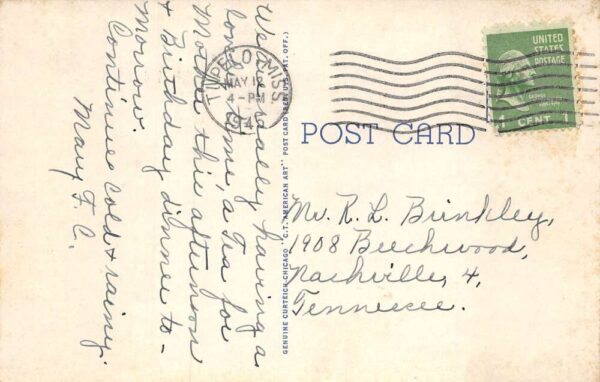 We are really having a
lovely time, a Tea for
Mother this afternoon
& Birthday dinner to-
morrow.
Continues cold & rainy.
Mary F. C.
TUPELO, MISS.
MAY 12
4-PM
194
UNITED
STATES
POSTAGE
1 CENT 1
POST CARD
GENUINE CURTEICH-CHICAGO "C.T. AMERICAN ART" POST CARD (REG. U.S. PAT. OFF.)
Mr. R. L. Brinkley,
1908 Beechwood,
Nashville, 4,
Tennessee.